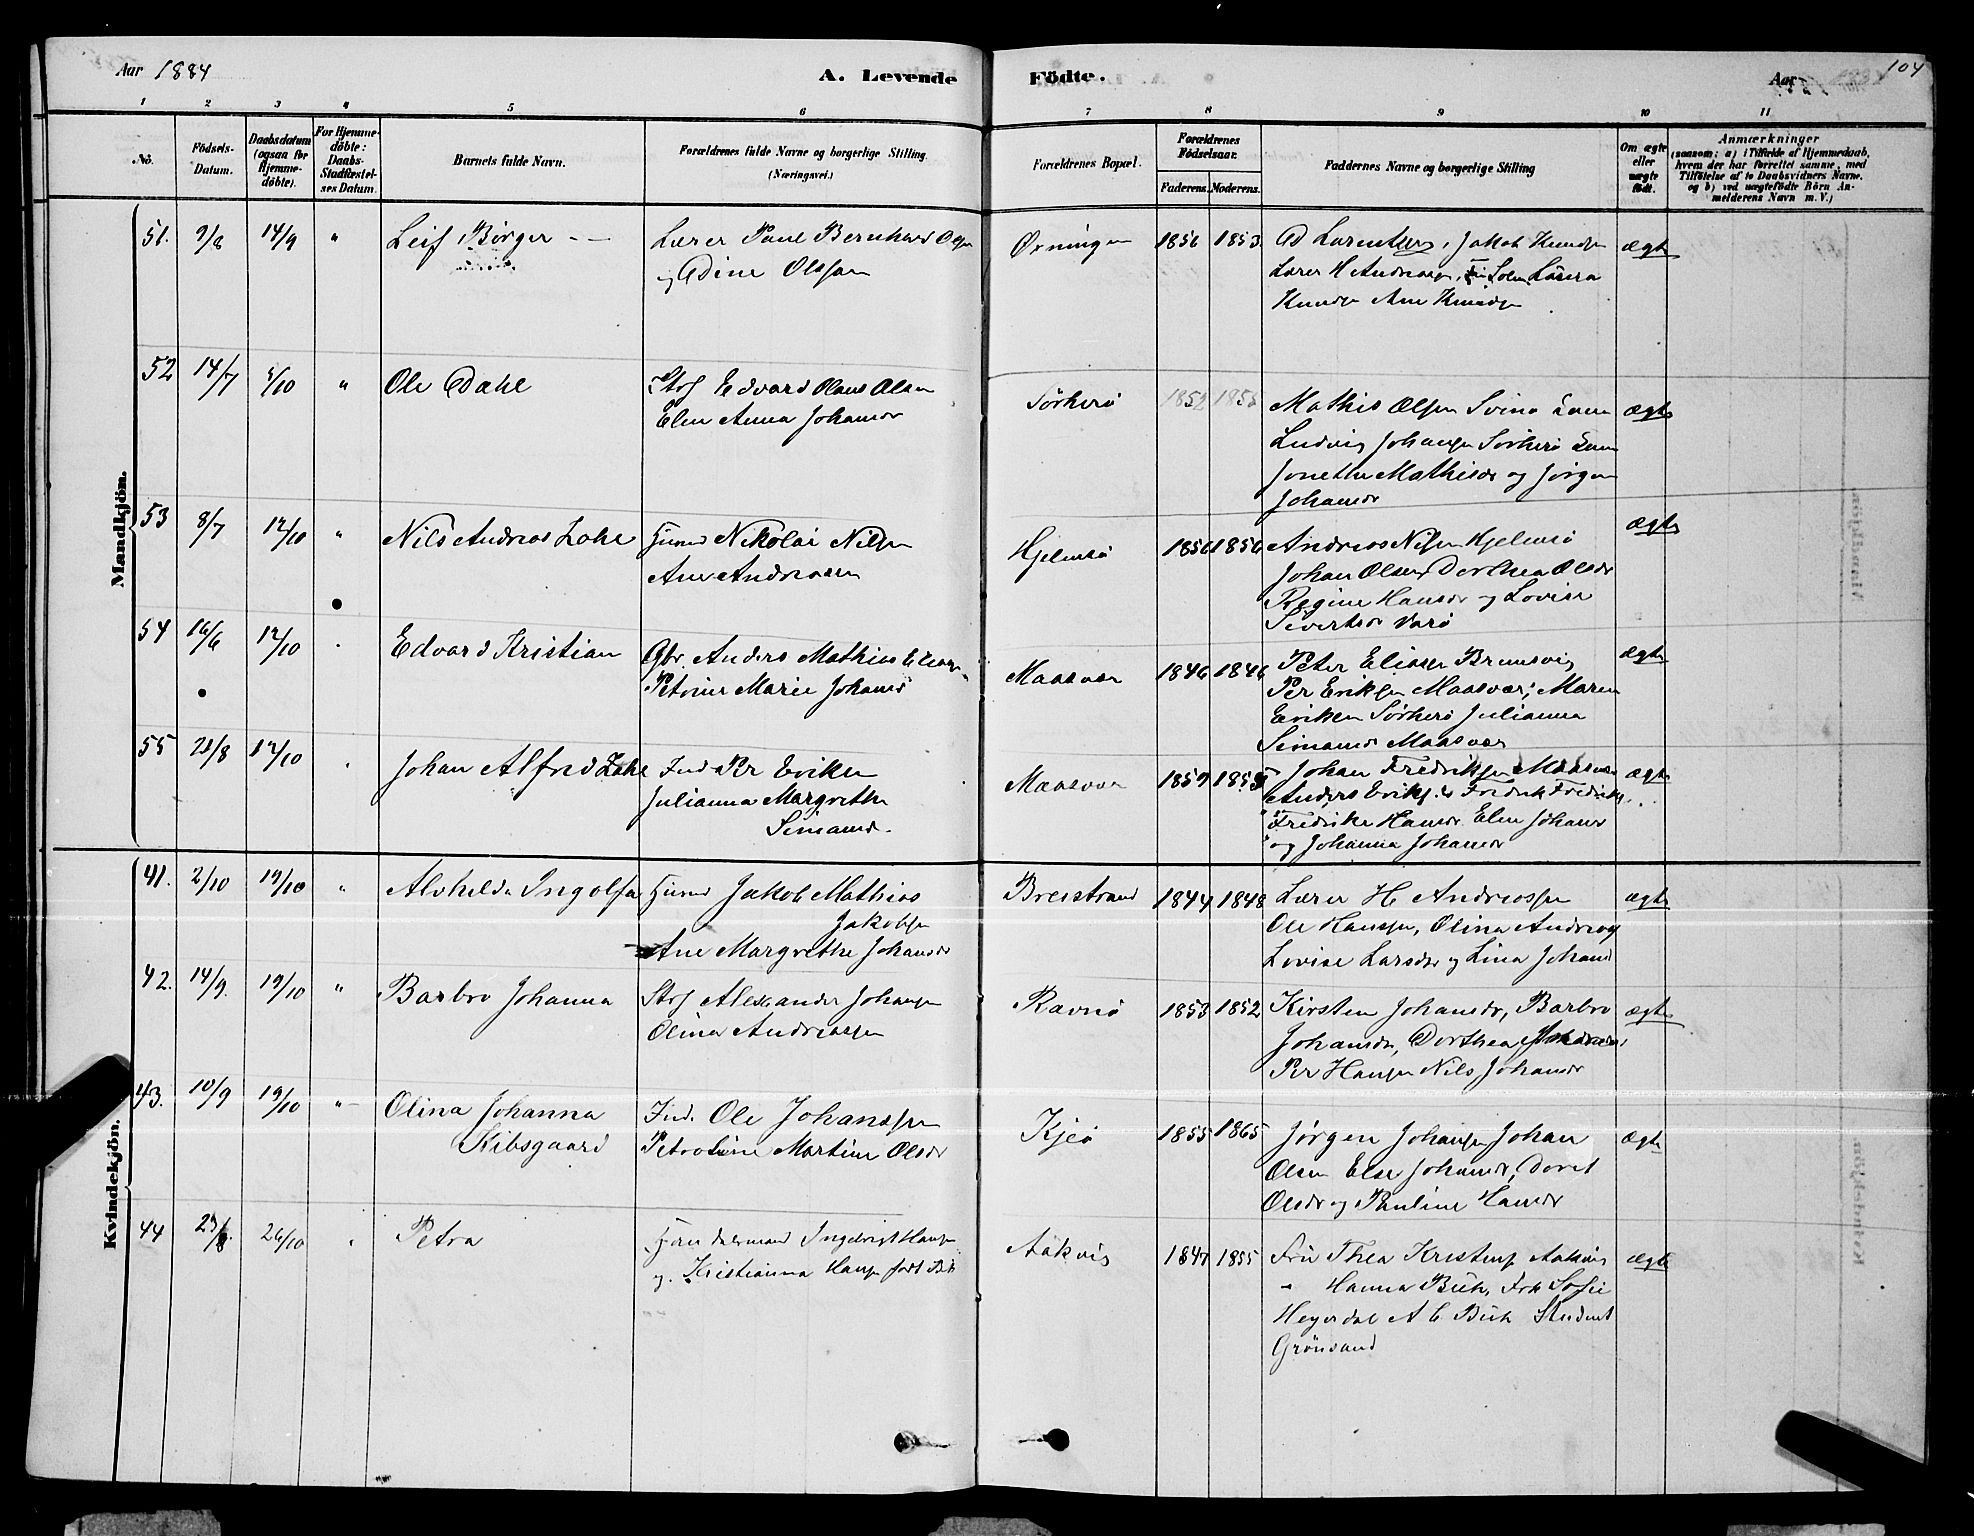 Aar 1884
A. Levende Födte.
Aar
104
1 2 3 4 5 6 7 8 9 10 11
No.
Födsels-Datum.
Daabsdatum (ogsaa for Hjemme-döbte).
For Hjemme-döbte: Daabs-Stadfæstel-ses Datum.
Barnets fulde Navn.
Forældrenes fulde Navne og borgerlige Stilling (Næringsvei.)
Forældrenes Bopæl.
Forældrenes Födselsaar.
Faderens. Moderens.
Faddernes Navne og borgerlige Stilling
Om ægte eller uægte födt.
Anmærkninger
(saasom: a) i Tilfælde af Hjemmedaab, hvem der har forrettet samme, med Tilföielse af to Daabsvidners Navne. og b) ved uægtefödte Börn An-melderens Navn m. V.)
Mandkjön.
51. 9/8 14/9 " Leif Börger
Lærer Paul Bernhard Olsen
og Adine Olsson
1856 1853.
Jakob Knudsen
Lærer H Andreasen, Laura
Knudsen Ane Knudsen
ægte
52 14/7 5/10 " Ole Dahl
Strf Edvard Olaus Olsen
Elen Anna Johansdr
Sörherö 1852
Mathis Olsen Svinö
Ludvig Johansen Sörherö
Jonethe Mathisdr og Jörgen
Johansdr
Ægte
53 8/7 12/10 " Nils Andreas
Nikolai Nilsen
Ane Andreasen
Hjelmsö 1856 1856
Andreas Nilsen Hjelmsö
Johan Olsen, Dorthea Olsdr
Regine Hansdr og Lovise
Sivertsdr Varö
Ægte
54 16/6 12/10 Edvard Kristian
Gbr. Anders Mathias Eliasen
Petrine Marie Johansd
Maasvær 1846 1846
Peter Eliasen Brunsvig
Per Eriksen Maasvær; Maren
Eriksen Sörherö Julianna
Simonsdr Maasvær
ægte
55 21/8 12/10 Johan Alfred
Ind Per Eriksen
Julianna Margrethe
Simonsd.
Maasvær 1859 1855
Johan Fredriksen Maasvær
Anders Eriks. Fredrik Fredriks
Fredrike Hansdr Elen Johansd
og Johanna Johansdr
ægte
Kvindekjön.
41. 2/10 19/10 " Alvhilda Ingolfa
Jakob Mathias
Jakobsen
Ane Margrethe Johansdr
Breistrand 1844 1848
Lærer H. Andreassen
Ole Hanssen, Olina Andreas
Lovise Larsdr og Lina Johansd
ægte
42. 14/9. 19/10 " Barbro Johanna
Strf Alexander Johansen
Olina Andreassen
Ravnö 1853 1852
Kirsten Johansdr, Barbro
Johansdr, Dorthea
Per Hansen Nils Johansdr
ægte
43. 10/9 19/10 " Olina Johanna
Kibsgaard
Ind. Ole Johanssen
Petroline Martine Olsdr
Kjeö 1855 1865
Jörgen Johansen Johan
Olsen Else Johansdr, Doret
Olsdr og Pauline Hansdr
Ægte
44 23/8. 26/10 Petra
Ingebrigt Hansen
og Kristianna Hansen født
Aakvig 1847 1855
Fru Thea Aakvig
" Hanna Frk Sofie
Heyerdal Student
Grönsand
Ægte